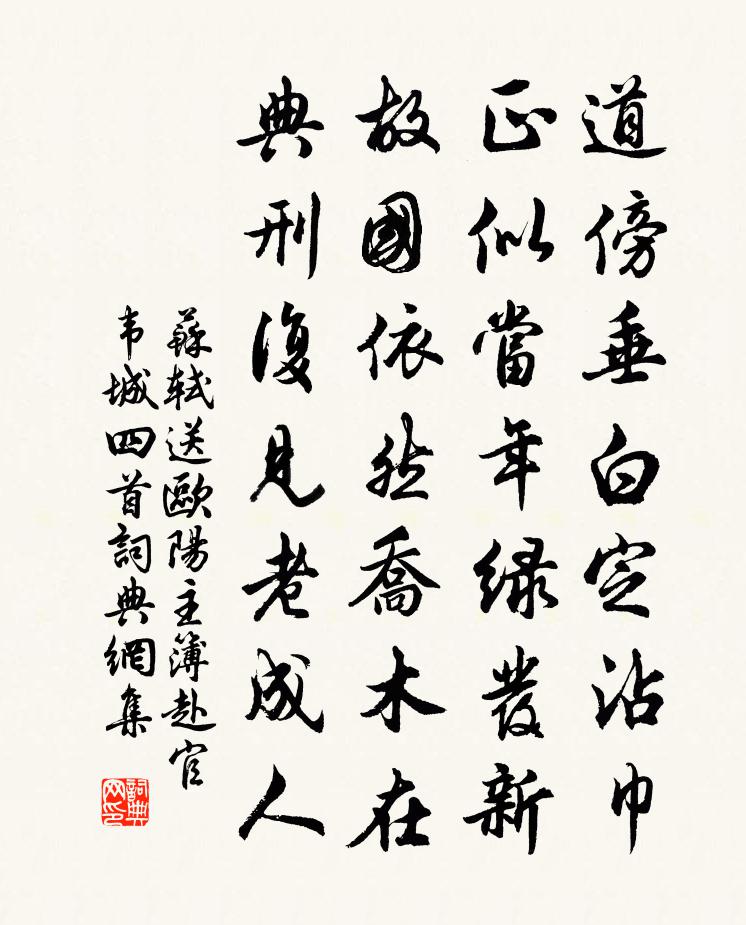 道傍垂白定沾巾
正似當年綠發新
故國依然喬木在
典刑復見老成人
蘇軾送歐陽主簿赴官
韦城四首詞典網集
詞典网印